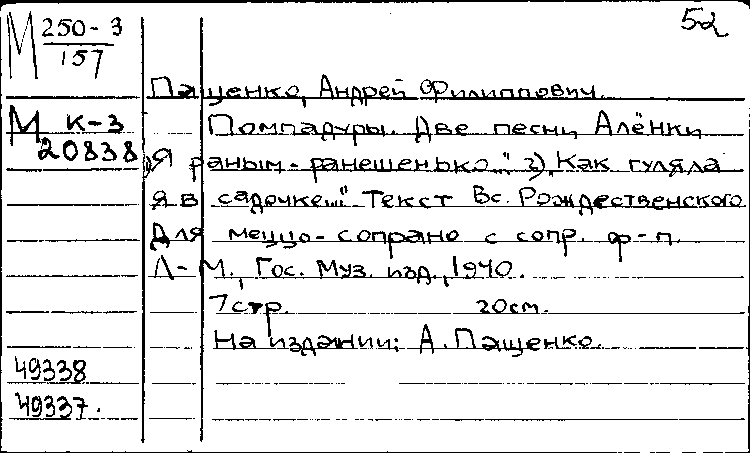 М 250-3
157
52
Пащенко, Андрей Филиппович.
М К-3
20838
Помпадуры. Две песни Алёнки
„Я раным-ранешенько..." 2) „Как гуляла
я в садочке..." Текст Вс. Рождественского
Для меццо-сопрано с сопр. ф-п.
Л-М., Гос. Муз. изд., 1940.
7 стр. 20 см.
На издании: А. Пащенко.
49338
49337.